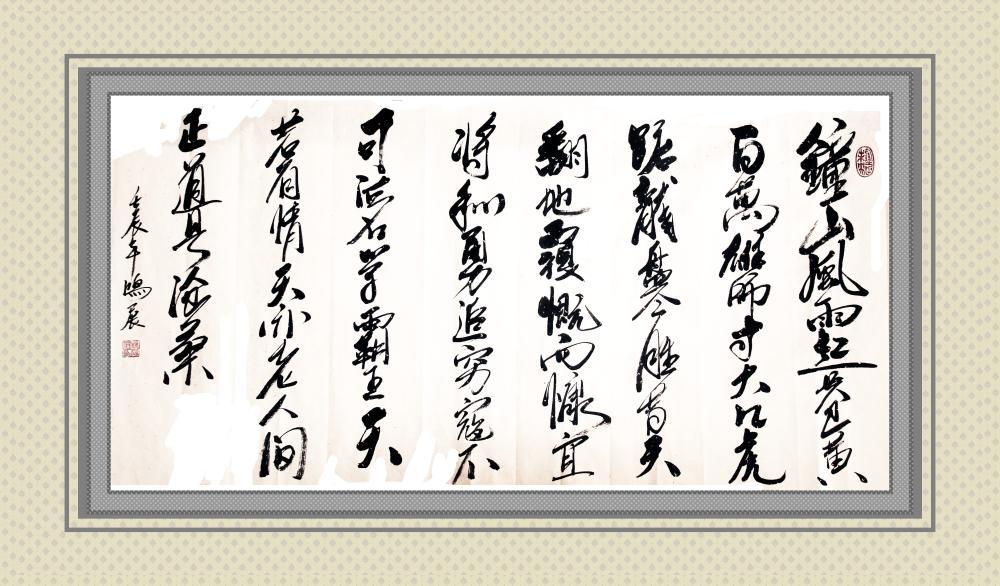 鐘山風雨起蒼黃
百萬雄師过大江虎
踞龍盤今勝昔天
翻地覆慨而慷宜
將剩勇追窮寇不
可沽名学霸王天
若有情天亦老人间
正道是滄桑
壬辰年